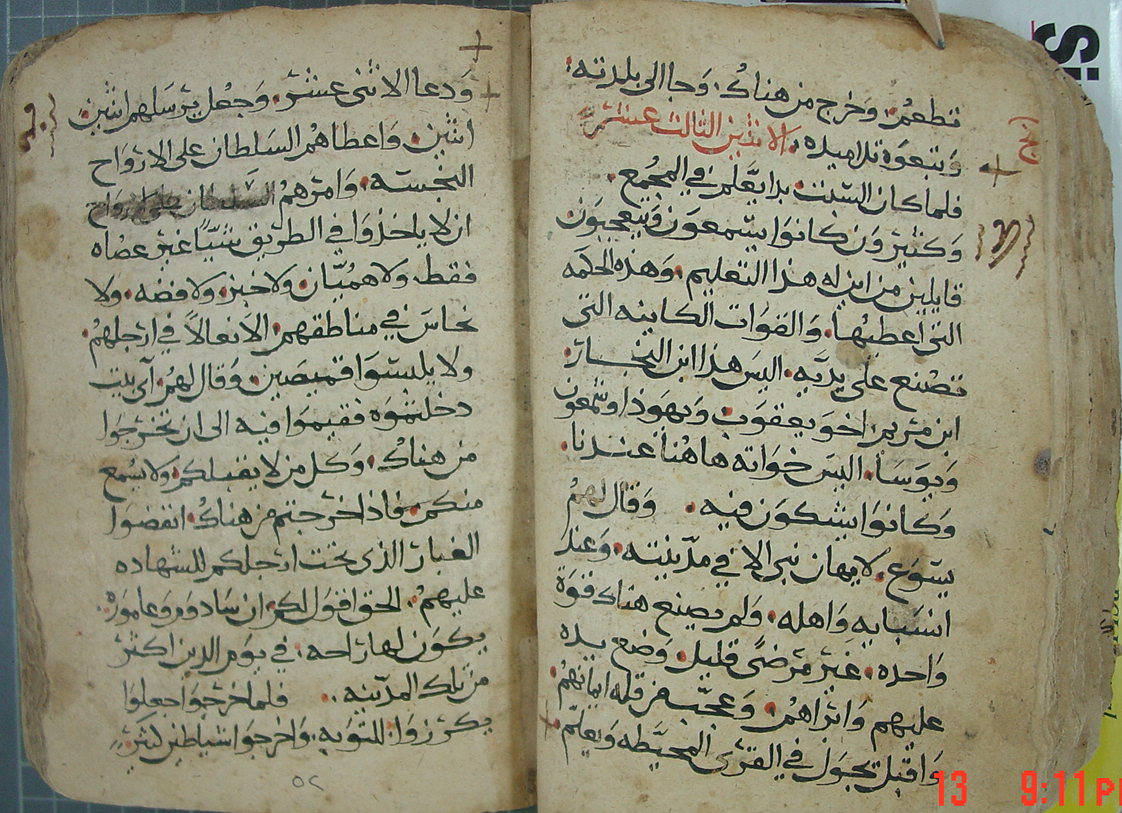 تطعم وخرج من هناك وجا الى بلدته
وتبعوه تلاميذه الاثنين الثالث عشر
فلما كان السبت بدا يعلم في المجمع
وكثيرون كانوا يسمعون فيتعجبون
قايلين من اين له هذا التعليم وهذه الحكمه
التي اعطيها والقوات الكاينه التي
تصنع على يديه اليس هذا ابن النجار
ابن مريم اخو يعقوب ويهوذا وشمعون
ويوسا اليس خواته هاهنا عندنا
وكانوا يشكون فيه وقال لهم
يسوع لا يهان نبي الا في مدينته وعند
انسبايه واهله ولم يصنع هناك قوة
واحده غير مرضى قليل وضع يده
عليهم وابراهم وعجب من قله ايمانهم
واقبل يجول في القرى المحيطه ويعلم
ودعا الاثنى عشر وجعل يرسلهم اثنين
اثنين واعطاهم السلطان على الارواح
النجسه وامرهم السلطان على الارواح
ان لا ياخذوا في الطريق شيًا غير عصاه
فقط ولا هميان ولا خبز ولا فضه ولا
نحاس في مناطقهم الا نعالاً في ارجلهم
ولا يلبسوا قميصين وقال لهم اي بيت
دخلتموه فقيموا فيه الى ان تخرجوا
من هناك وكل من لا يقبلكم ولا يسمع
منكم فاذا خرجتم من هناك انفضوا
الغبار الذي تحت ارجلكم للشهاده
عليهم الحق اقول لكم ان سادوم وعاموره
يكون لها راحه في يوم الدين اكثر
من تلك المدينه فلما خرجوا جعلوا
يكرزوا للتوبه واخرجوا شياطين كثير
٥٢
13 9:11 P